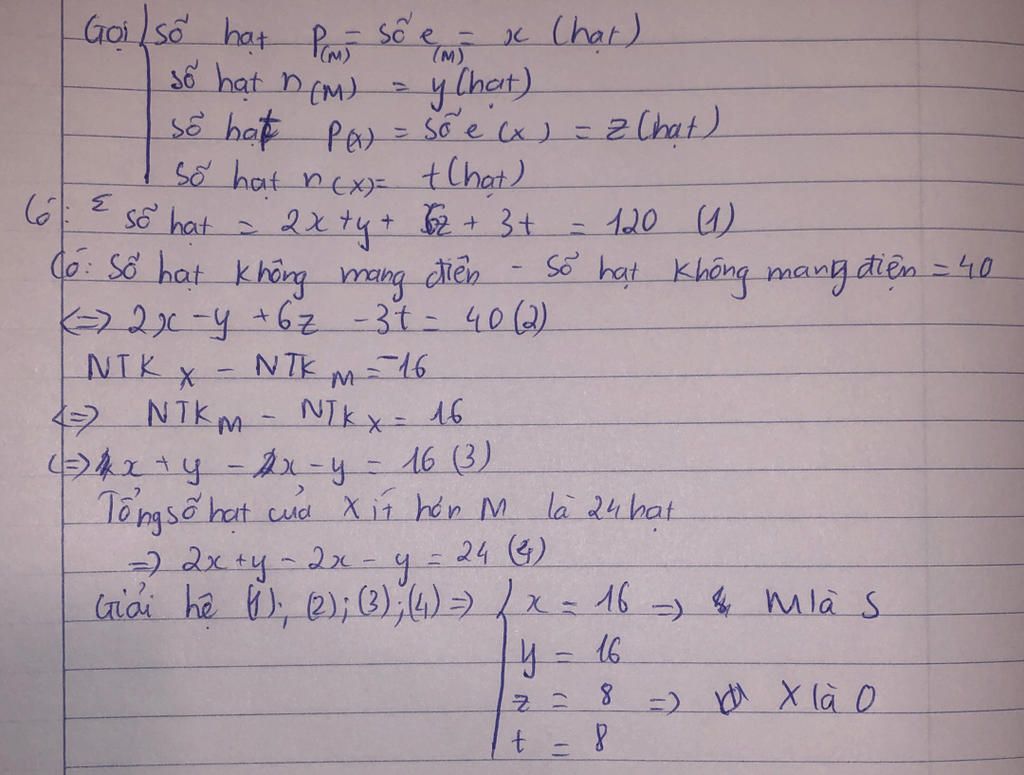 Gọi { số hạt P(M) = số e(M) = x (hạt)
số hạt n(M) = y (hạt)
số hạt P(X) = số e (X) = z (hạt)
số hạt n(X) = t (hạt)
Có: Σ số hạt = 2x + y + 6z + 3t = 120 (1)
Có: Số hạt không mang điện - Số hạt không mang điện = 40
<=> 2x - y + 6z - 3t = 40 (2)
NTK X - NTK M = -16
<=> NTK M - NTK X = 16
<=> x + y - x - y = 16 (3)
Tổng số hạt của X ít hơn M là 24 hạt
=> 2x + y - 2x - y = 24 (4)
Giải hệ (1); (2); (3); (4) => { x = 16 => M là S
y = 16
z = 8 => X là O
t = 8